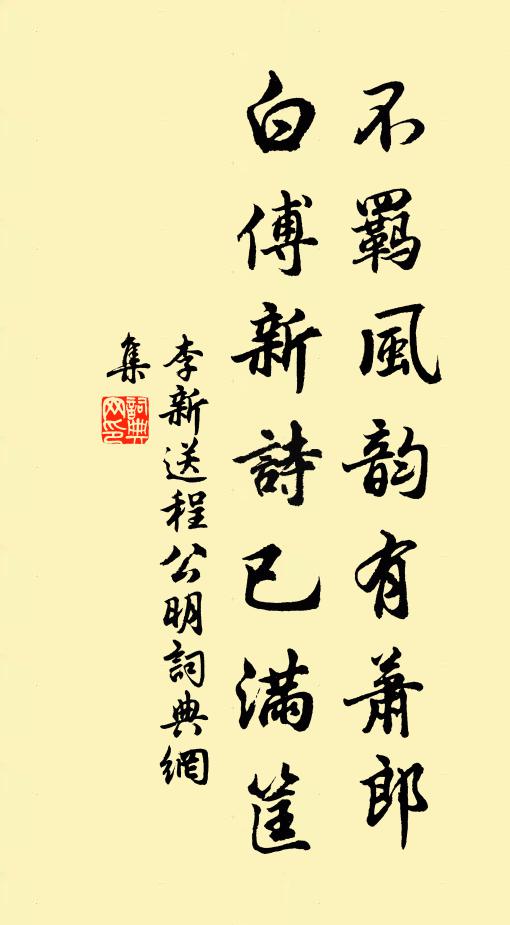 不羈風韵有蕭郎
白傅新詩已滿筐
李新送程公明詞典網
集
詞典網印